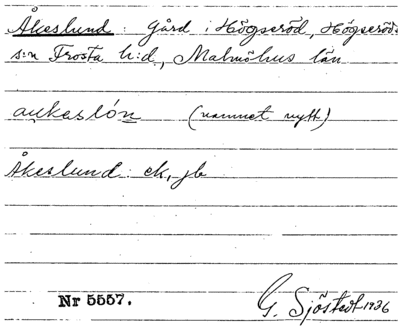 Åkeslund: gård i Högseröd, Högseröds
s:n Frosta h:d, Malmöhus län
aukeslón (namnet nytt)
Åkeslund: ek, jb
Nr 5557.
G. Sjöstedt 1936